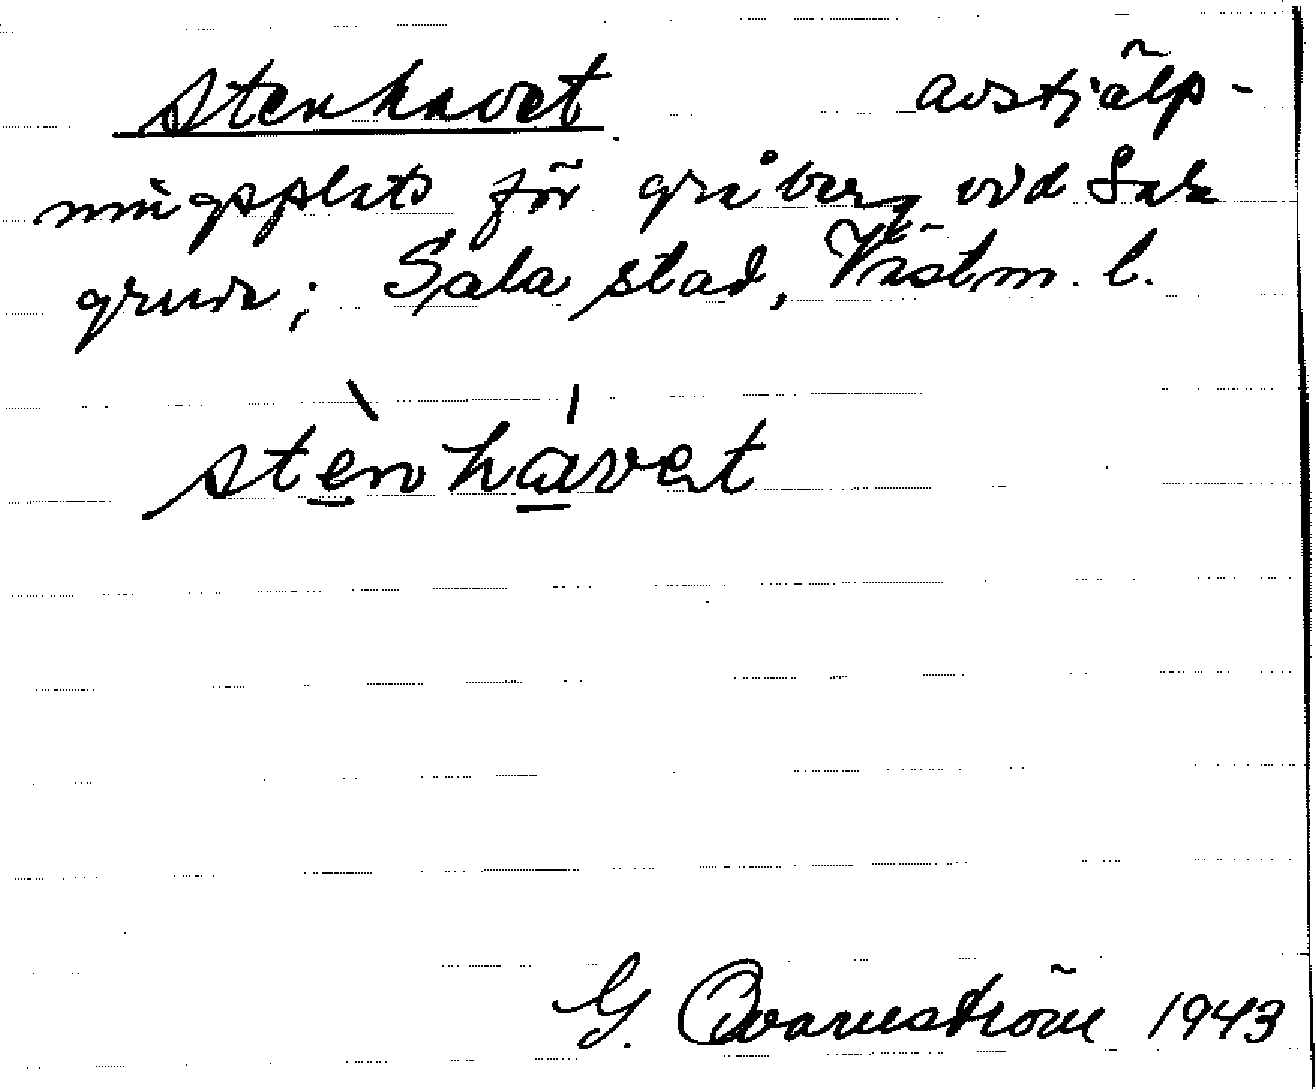 Stenhavet avstjälp-
ningsplats för gråberg vid Sala
gruva; Sala stad, Västm. l.
stènhávet
G. Qvarnström 1943